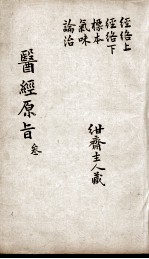 經絡上
經絡下
標本
氣味
論治
醫經原旨
叁
紺齋主人藏